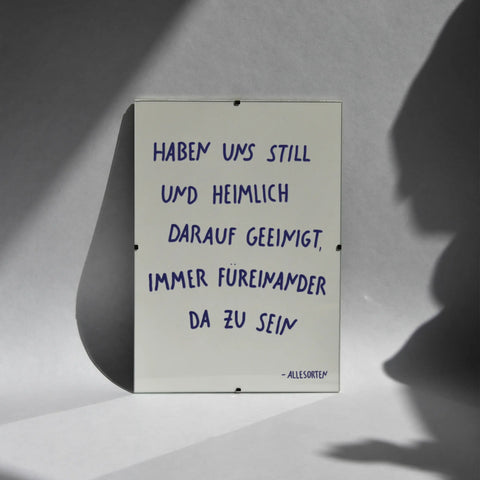 HABEN UNS STILL
UND HEIMLICH
DARAUF GEEINIGT,
IMMER FÜREINANDER
DA ZU SEIN
- ALLESORTEN